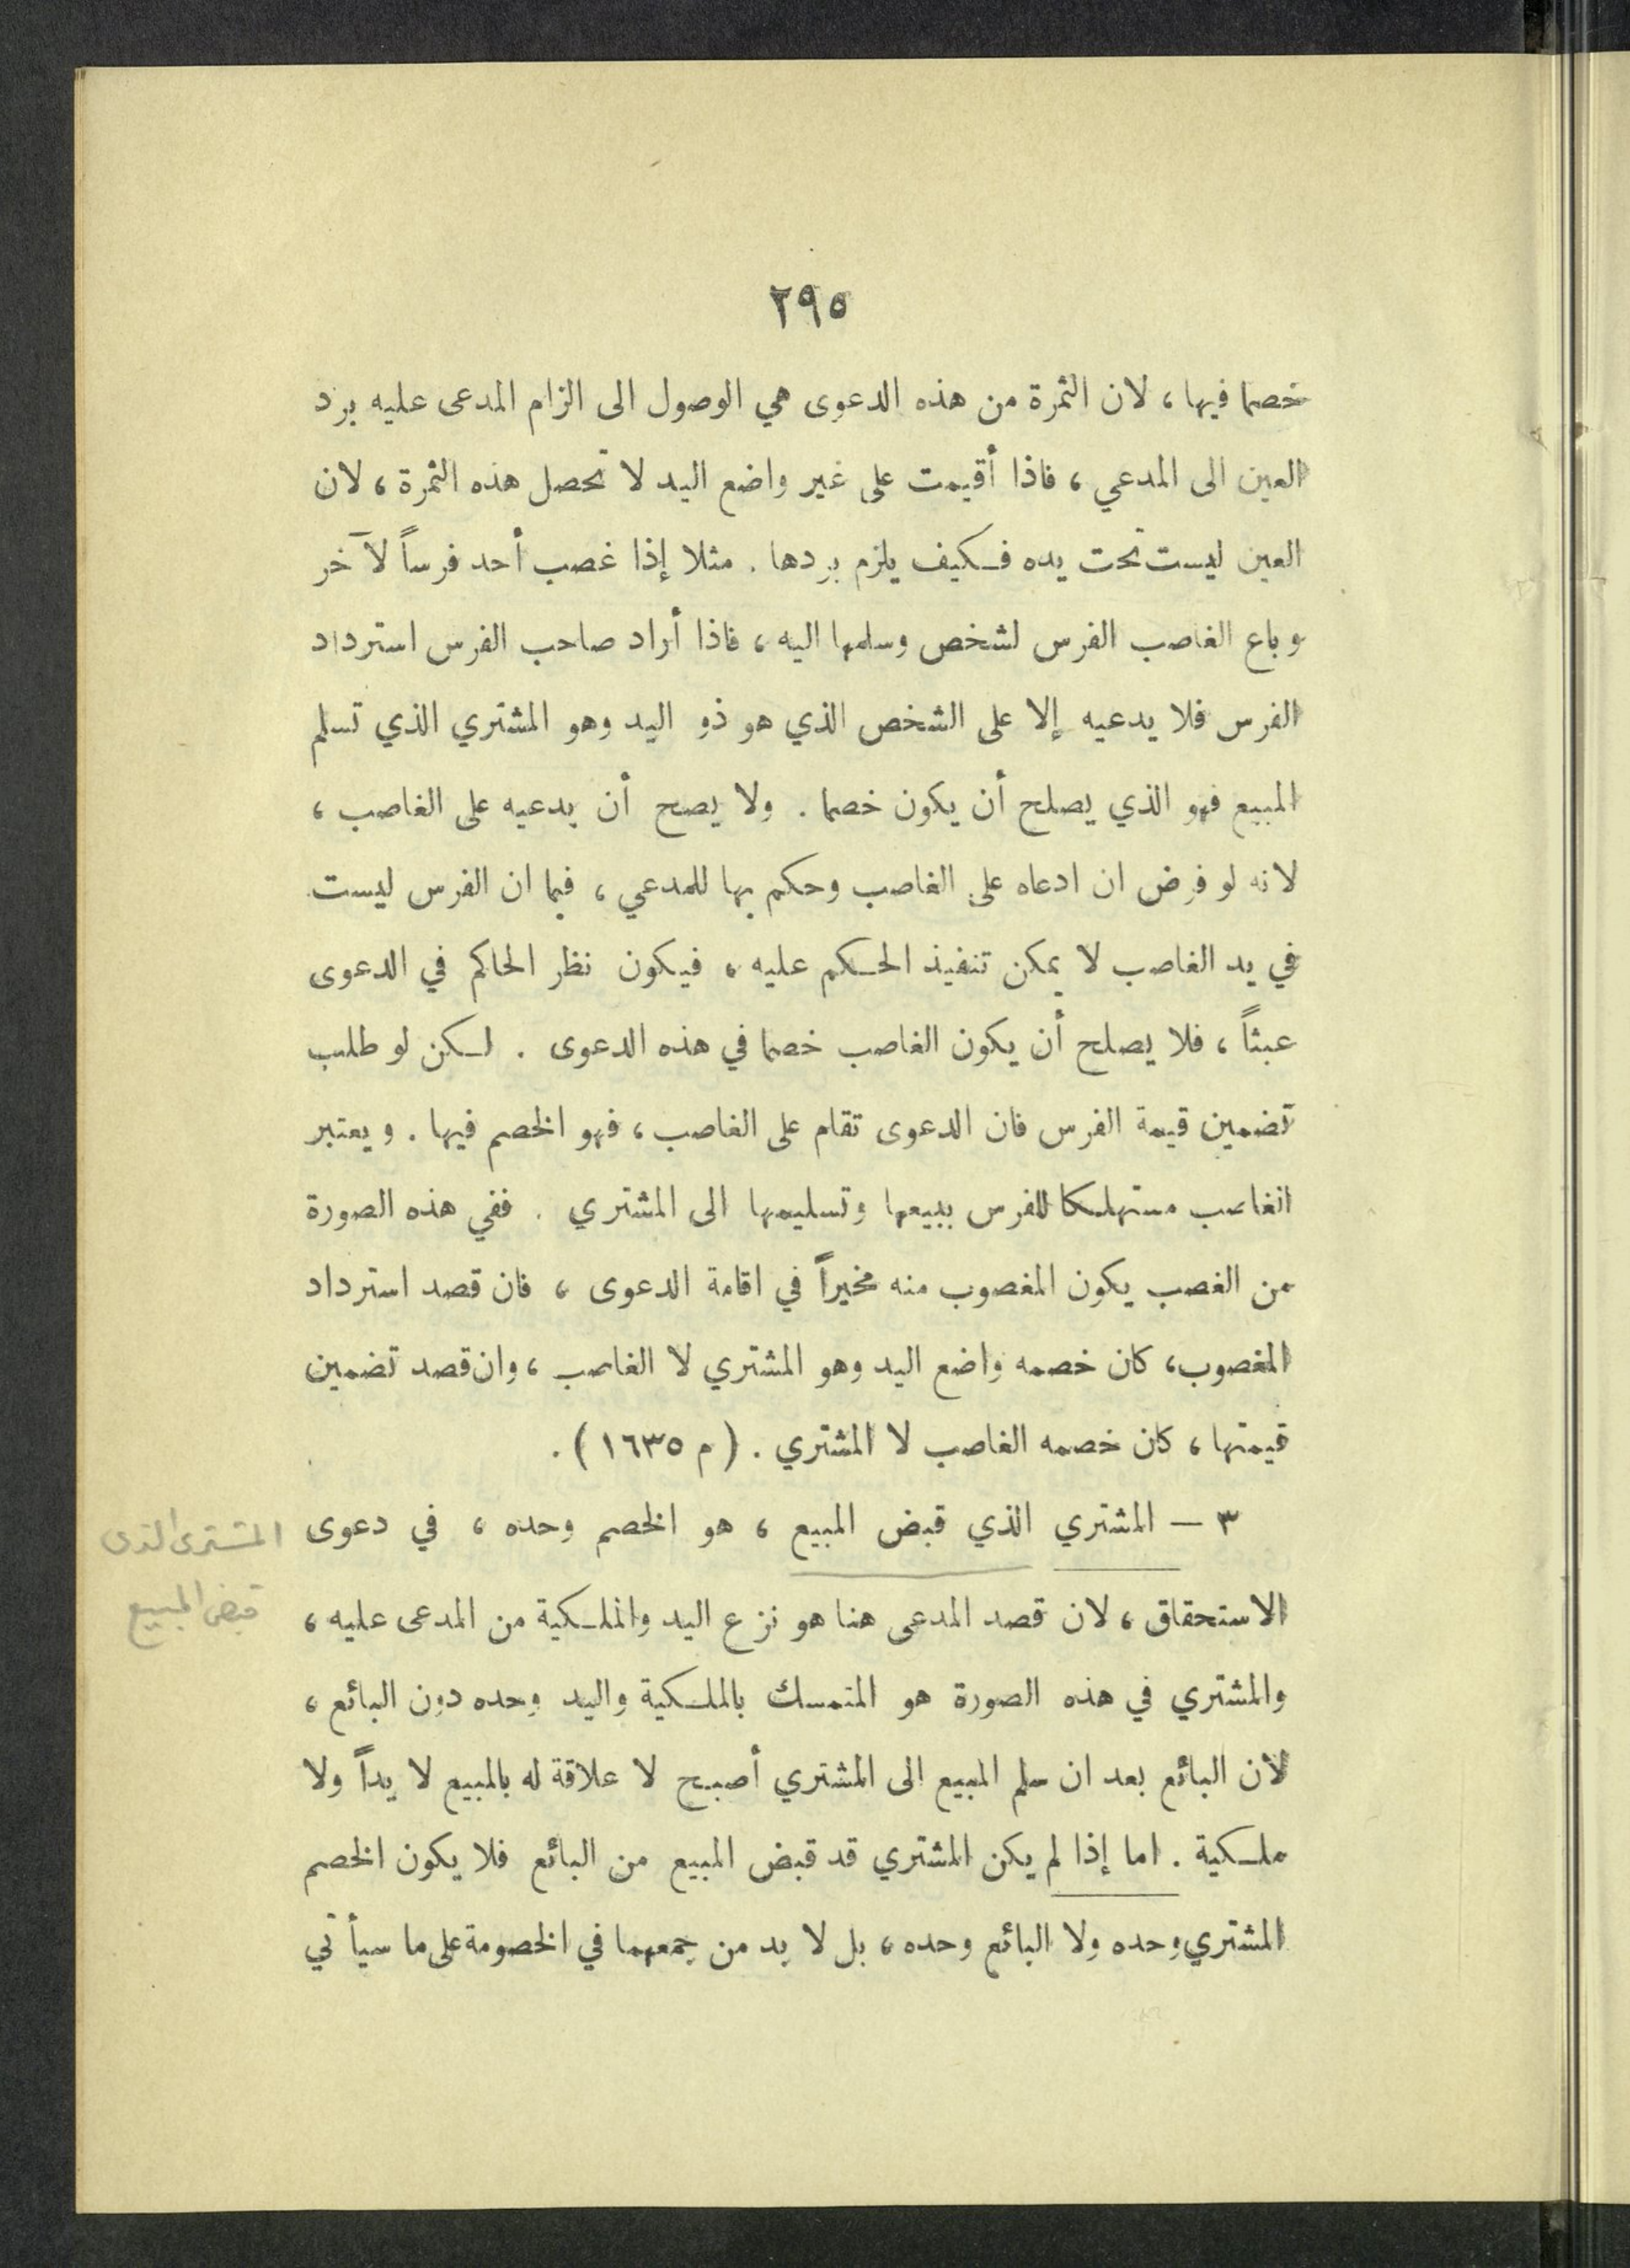 ٢٩٥
خصما فيها ، لان الثمرة من هذه الدعوى هي الوصول الى الزام المدعى عليه برد
العين الى المدعي ، فاذا أقيمت على غير واضع اليد لا تحصل هذه الثمرة ، لان
العين ليست تحت يده فكيف يلزم بردها . مثلا إذا غصب أحد فرساً لآخر
وباع الغاصب الفرس لشخص وسلمها اليه ، فاذا أراد صاحب الفرس استرداد
الفرس فلا يدعيه إلا على الشخص الذي هو ذو اليد وهو المشتري الذي تسلم
المبيع فهو الذي يصلح أن يكون خصما . ولا يصح أن يدعيه على الغاصب ،
لانه لو فرض ان ادعاه على الغاصب وحكم بها للمدعي ، فبما ان الفرس ليست
في يد الغاصب لا يمكن تنفيذ الحكم عليه ، فيكون نظر الحاكم في الدعوى
عبثاً ، فلا يصلح أن يكون الغاصب خصما في هذه الدعوى . لكن لو طلب
تضمين قيمة الفرس فان الدعوى تقام على الغاصب ، فهو الخصم فيها . ويعتبر
الغاصب مستهلكا للفرس ببيعها وتسليمها الى المشتري . ففي هذه الصورة
من الغصب يكون المغصوب منه مخيراً في اقامة الدعوى ، فان قصد استرداد
المغصوب ، كان خصمه واضع اليد وهو المشتري لا الغاصب ، وان قصد تضمين
قيمتها ، كان خصمه الغاصب لا المشتري . ( م ١٦٣٥ ) .
٣ — المشتري الذي قبض المبيع ، هو الخصم وحده ، في دعوى
الاستحقاق ، لان قصد المدعى هنا هو نزع اليد والملكية من المدعى عليه ،
والمشتري في هذه الصورة هو المتمسك بالملكية واليد وحده دون البائع ،
لأن البائع بعد ان سلم المبيع الى المشتري أصبح لا علاقة له بالمبيع لا يداً ولا
ملكية . اما إذا لم يكن المشتري قد قبض المبيع من البائع فلا يكون الخصم
المشتري وحده ولا البائع وحده ، بل لا بد من جمعهما في الخصومة على ما سيأتي
المشترى الذى
قبض المبيع